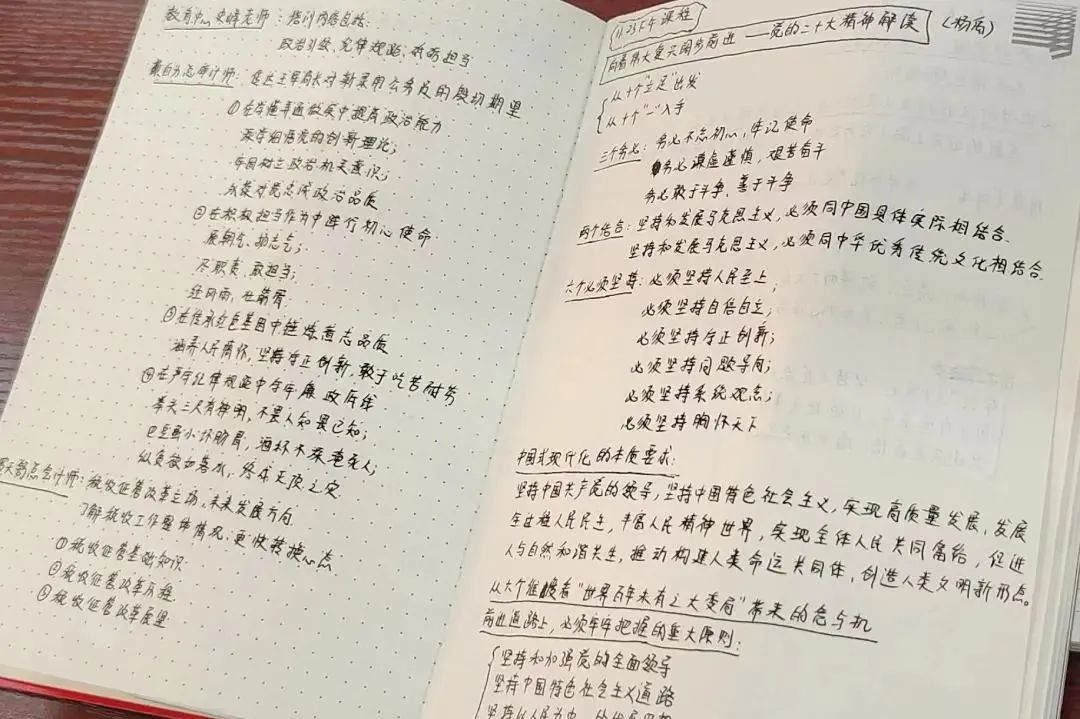 教育中心 老师：培训内容包括：
政治引领、纪律规范、我为担当
总会计师：党述主导局长对新录用公务员的殷切期望
①在弄懂弄通做实中提高政治能力
深学细悟党的创新理论；
牢固树立政治机关意识；
永葆对党忠诚政治品质
②在积极担当作为中践行初心使命
展朝气、励志气；
尽职责、敢担当；
经风雨、壮筋骨
③在传承红色基因中锤炼意志品质
涵养人民情怀，坚持守正创新，敢于吃苦耐劳
④在严守纪律规矩中守牢廉政底线
举头三尺有神明，不畏人知畏己知；
豆蛋小坏肠胃，酒杯不深淹死人；
纵贪欲如落水，终成灭顶之灾
总会计师：税收征管改革主场、未来发展方向
了解税收工作整体情况，更快转换心态
①税收征管基础知识
②税收征管改革历程
③税收征管改革展望
11.25下午课程
向着伟大复兴阔步前进——党的二十大精神解读
从十个"立足"出发
从十个"一"入手
三个务必：务必不忘初心、牢记使命
务必谦虚谨慎，艰苦奋斗
务必敢于斗争、善于斗争
两个结合：坚持和发展马克思主义，必须同中国具体实际相结合.
坚持和发展马克思主义，必须同中华优秀传统文化相结合.
六个必须坚持：必须坚持人民至上；
必须坚持自信自立；
必须坚持守正创新；
必须坚持问题导向；
必须坚持系统观念；
必须坚持胸怀天下
中国式现代化的本质要求：
坚持中国共产党的领导，坚持中国特色社会主义，实现高质量发展，发展
全过程人民民主，丰富人民精神世界，实现全体人民共同富裕，促进
人与自然和谐共生，推动构建人类命运共同体，创造人类文明新形态。
从六个维度看"世界百年未有之大变局"带来的危与机
前进道路上，必须牢牢把握的重大原则：
坚持和加强党的全面领导
坚持中国特色社会主义道路